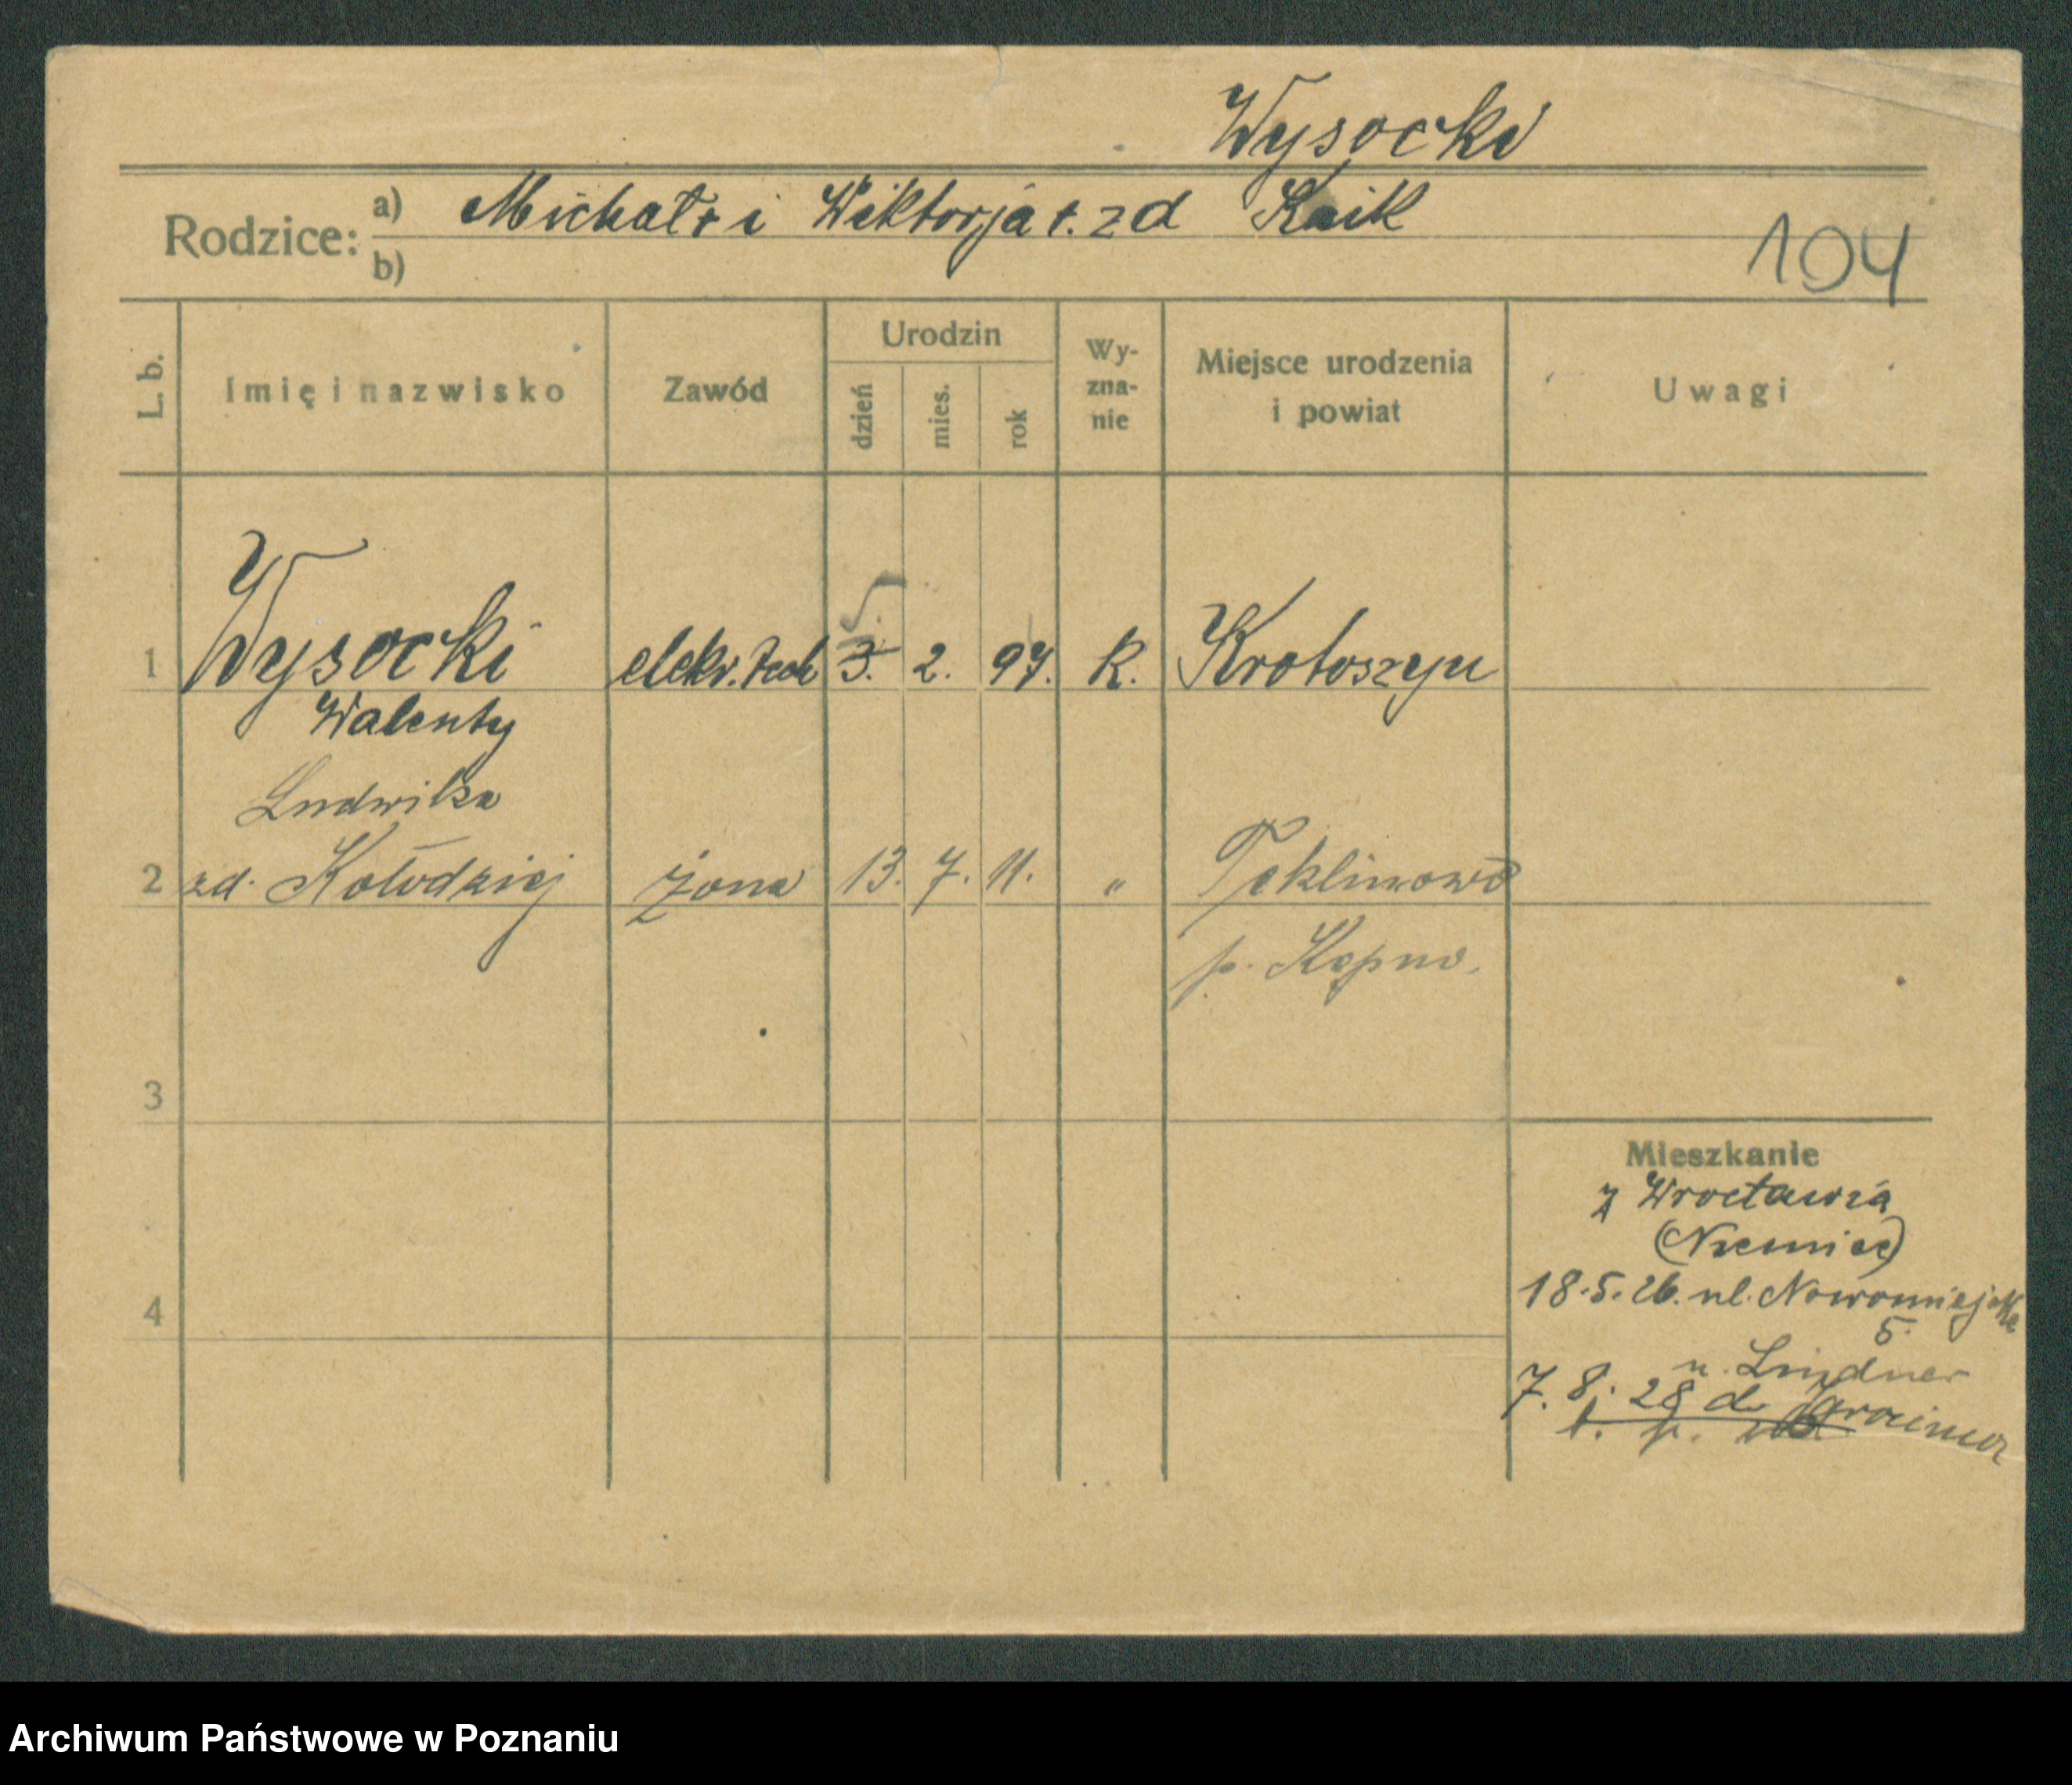 Wysocki
Rodzice: a) Michał + i Wiktorja +. zd Kaik
b)
104
L. b.
Imię i nazwisko
Zawód
Urodzin
dzień
mies.
rok
Wy-
zna-
nie
Miejsce urodzenia
i powiat
Uwagi
1 Wysocki elektr. tech 3. 5. 2. 97. K. Krotoszyn
Walenty
Ludwika
2 zd. Kołodziej żona 13. 7. 11. " Teklinowo
p. Kępno.
3
4
Mieszkanie
z Wrocławia
(Niemiec)
18.5.26. ul. Nowomiejska
5.
u. Lindner
7. 8. 28 do
Archiwum Państwowe w Poznaniu